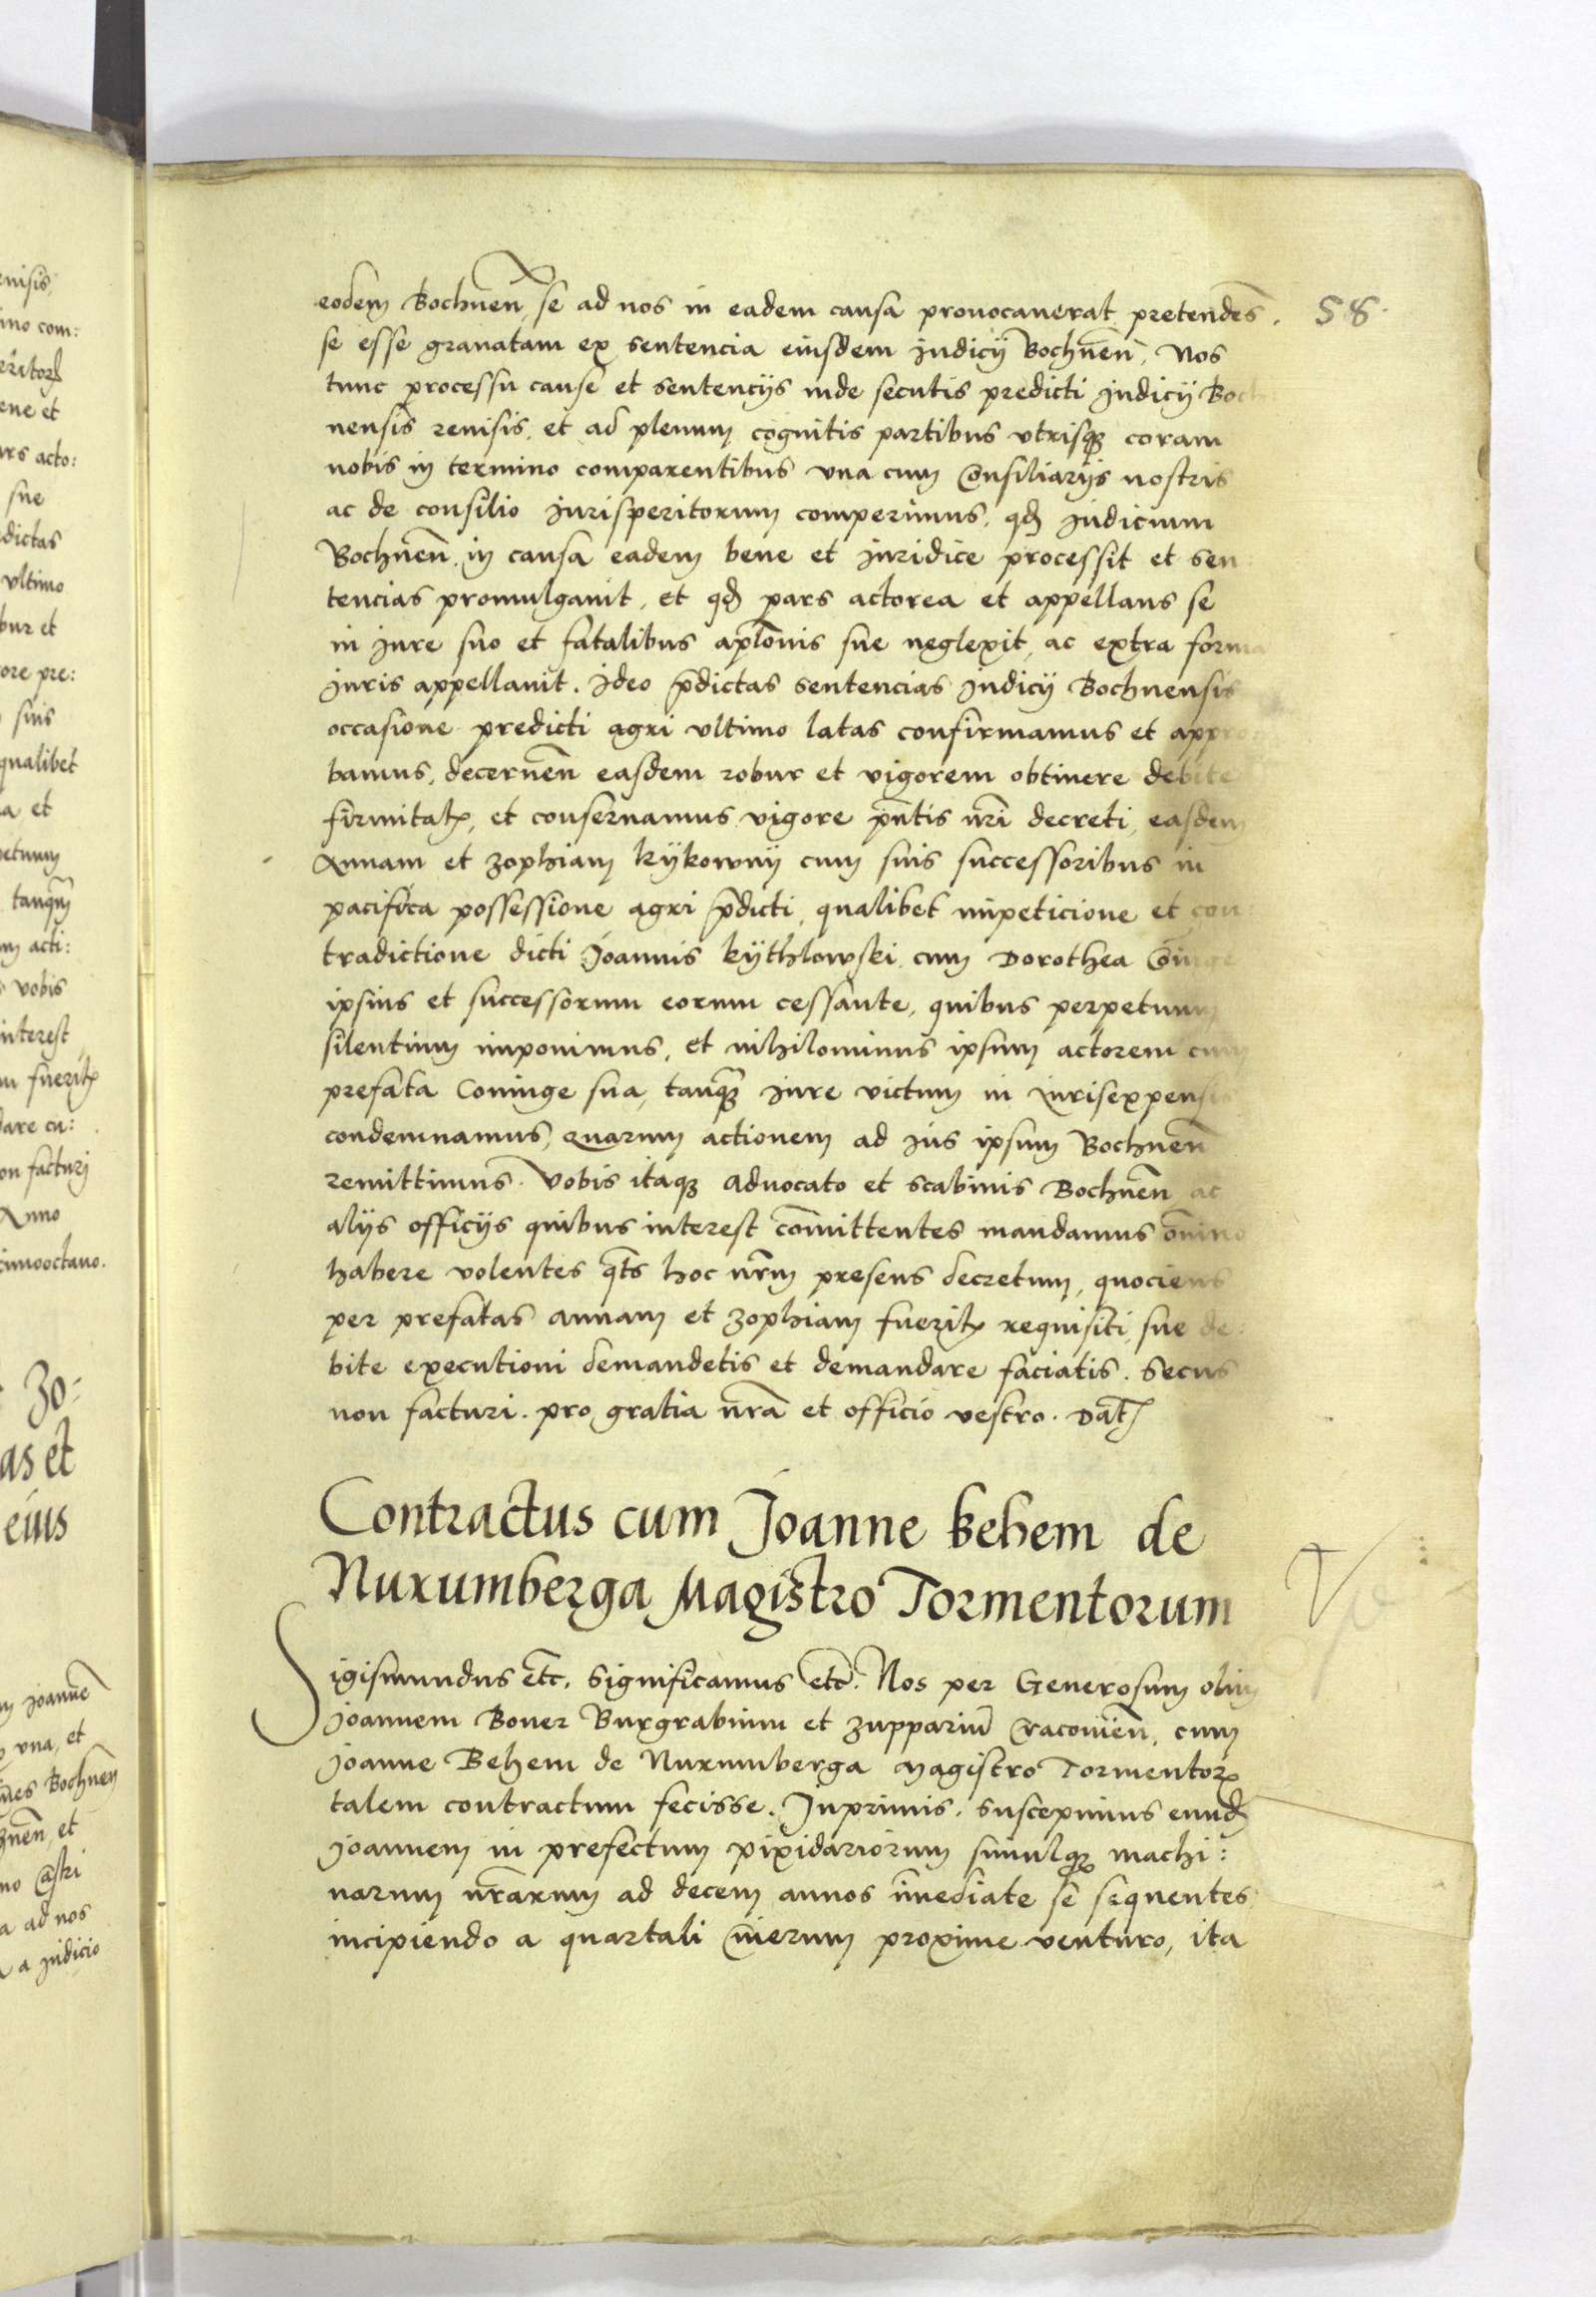 58.
eodem Bochnen̄ se ad nos in eadem causa prouocauerat pretendēs.
se esse grauatam ex sentencia eiusdem Iudicij Bochnen̄, Nos
tunc processu cause et sentencijs inde secutis predicti Iudicij Boch:
nensis reuisis, et ad plenum cognitis partibus vtrisqꝫ coram
nobis in termino comparentibus vna cum Consiliarijs nostris
ac de consilio Iurisperitorum comperimus, qđ Iudicium
Bochnen̄. in causa eadem bene et Iuridice processit et sen:
tencias promulgauit, et qđ pars actorea et appellans se
in Iure suo et fatalibus apl̄onis sue neglexit, ac extra forma
Iuris appellauit. Ideo p̄dictas sentencias Iudicij Bochnensis
occasione predicti agri vltimo latas confirmamus et appro
bamus, decernen̄ easdem robur et vigorem obtinere debite
firmitatꝭ, et conseruamus vigore pn̄tis nr̄i decreti, easdem
Annam et Zophiam kÿkownÿ cum suis successoribus in
pacifica possessione agri p̄dicti, qualibet impeticione et con:
tradictione dicti Joannis kÿthlowski cum Dorothea Coniuge
ipsius et successorum eorum cessante, quibus perpetuum
silentium imponimus, et nihilominus ipsum actorem cum
prefata Coniuge sua, tanqꝫ Iure victum in Iurisexpensis
condemnamus, Quarum actionem ad Ius ipsum Bochnen̄
remittimus. Vobis itaqꝫ Aduocato et scabinis Bochnen̄ ac
alijs officijs quibus interest com̄ittentes mandamus om̄ino
habere volentes qt̄s hoc nr̄m presens decretum, quociens
per prefatas Annam et Zophiam fueritꝭ requisiti, sue de:
bite executioni demandetis et demandare faciatis. Secus
non facturi. pro gratia nr̄a et officio vestro. Dat̄ꝭ
Contractus cum Joanne Behem de
Nurumberga Magistro Tormentorum
Sigismundus etc̄. Significamus etc̄. Nos per Generosum olim
Joannem Boner Burgrabium et Zuppariū Cracouien̄, cum
Joanne Behem de Nurumberga Magistro Tormentorꝭ
talem contractum fecisse. Inprimis. suscepimus eundꝭ
Joannem in prefectum pixidariorum simulqꝫ machi:
narum nr̄arum ad decem annos im̄ediate se sequentes
incipiendo a quartali Cinerum proxime venturo, ita